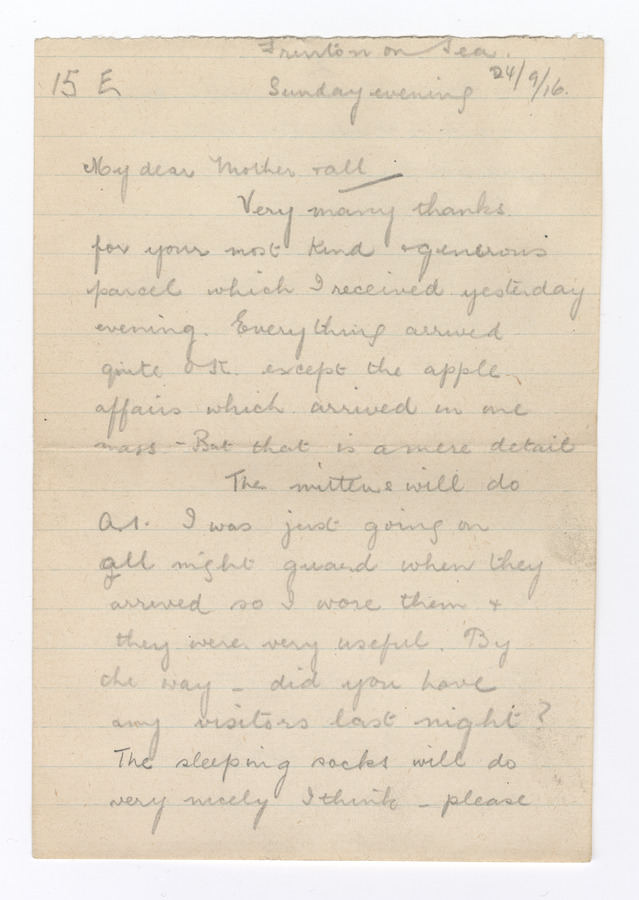 Frinton on Sea.
15 E
24/9/16.
Sunday evening
My dear Mother & all
Very many thanks
for your most kind & generous
parcel which I received yesterday
evening. Everything arrived
quite O.K. except the apple
affairs which arrived in one
mass - But that is a mere detail
The mittens will do
A.1. I was just going on
all night guard when they
arrived so I wore them &
they were very useful. By
the way - did you have
any visitors last night?
The sleeping socks will do
very nicely I think - please